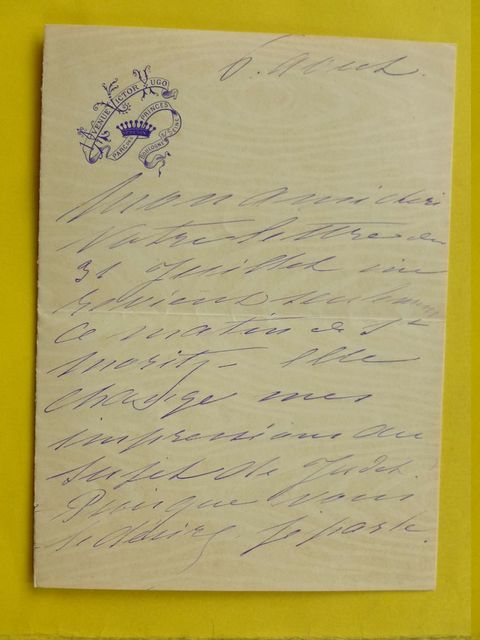 AVENUE VICTOR HUGO
PARC DES PRINCES
BOULOGNE S/ SEINE
6. août.
Mon ami chéri
Votre lettre du
31 Juillet me
revient seulement
ce matin de St
Moritz - elle
change mes
impressions au
sujet de Judet.
Puisque vous
le désirez, je parle.